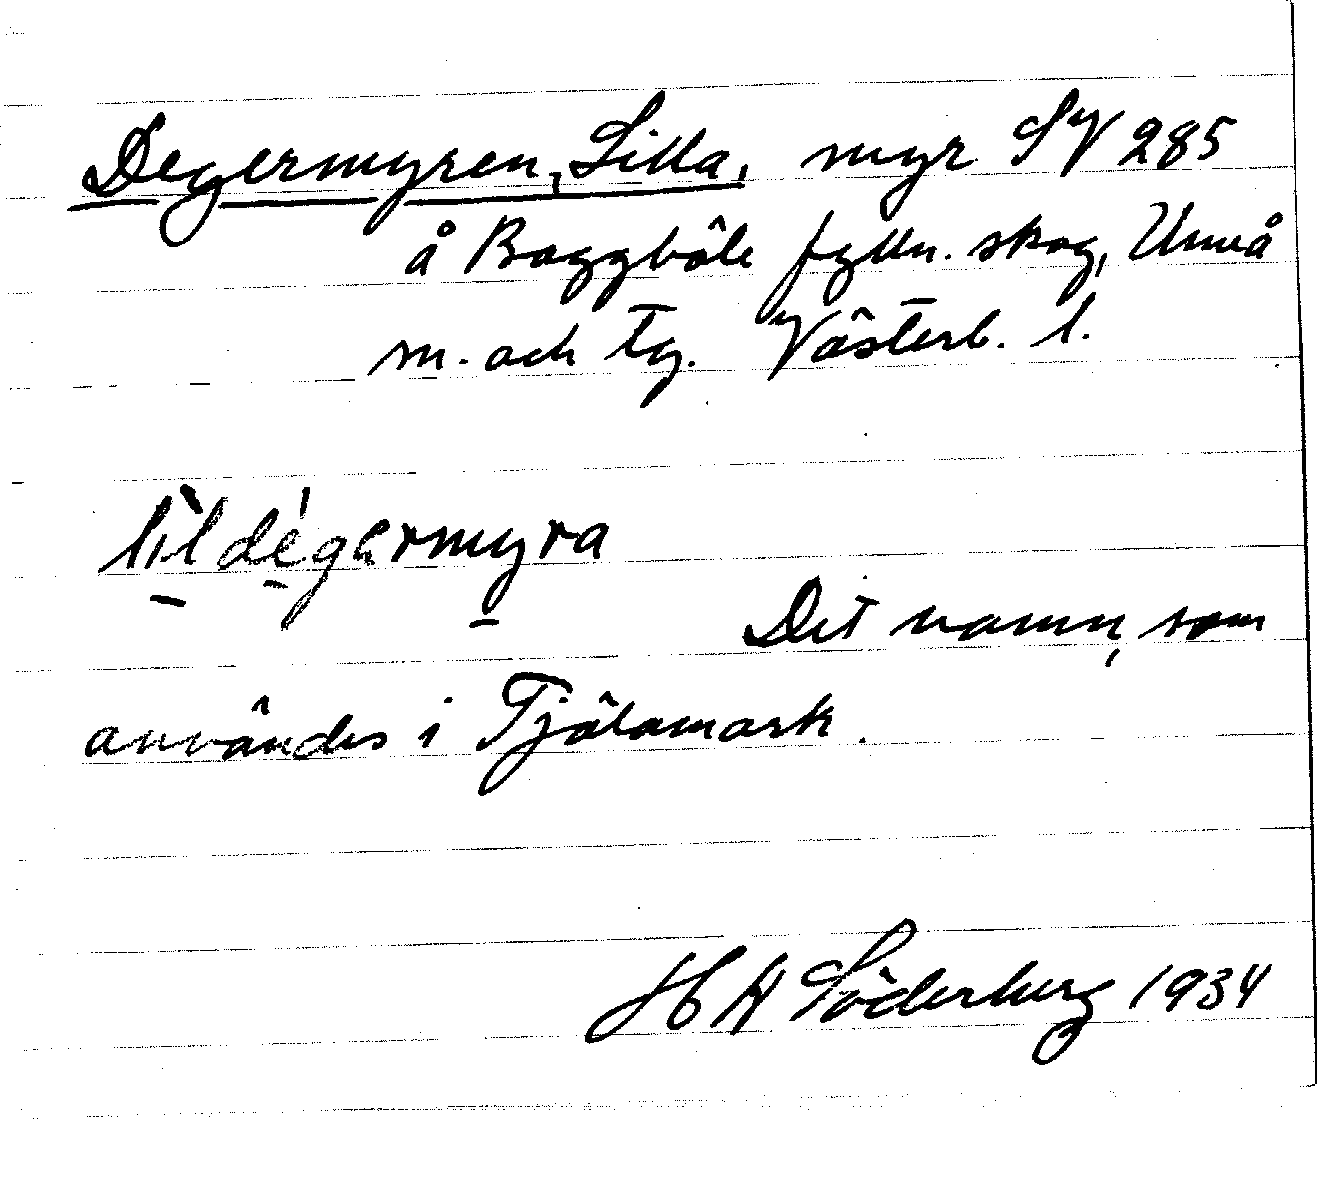 Degermyren, Lilla, myr SV 285
å Baggböle fgttn. skog, Umeå
m. och tg. Västerb. l.
lìldégermyra
Det namn, som
användes i Tjälamark.
H A Söderberg 1934